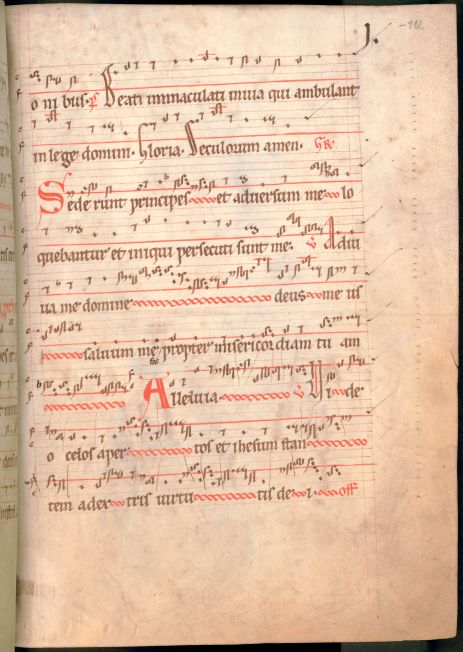 o ni bus. Ps Beati immaculati in via qui ambulant
in lege domini. Gloria. Seculorum amen. GR
Sederunt principes et adversum me lo
quebantur et iniqui persecuti sunt me. V Adiu
va me domine deus meus
salvum me propter misericordiam tu am
Alleluia V Vi de
o celos aper tos et ihesum stan
tem a dex tris virtu tis de i. off